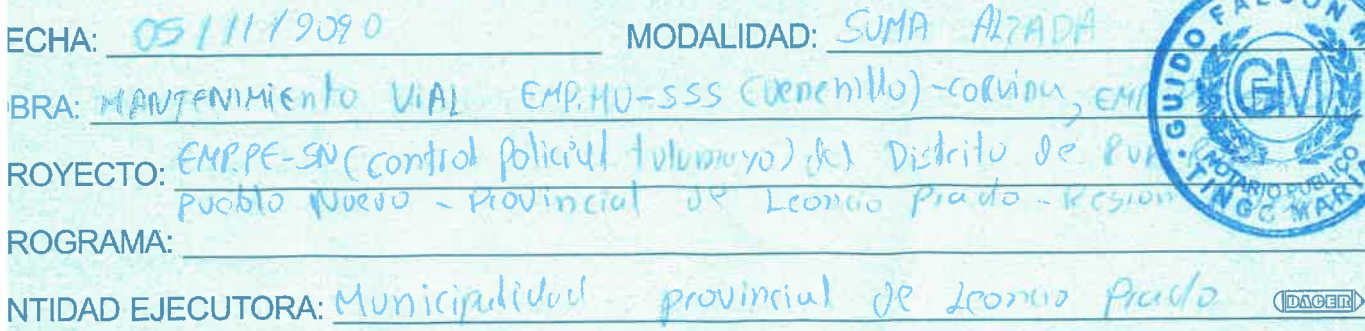 ECHA: 05/11/2020 MODALIDAD: SUMA ALZADA
BRA: MANTENIMIENTO VIAL EMP.HU-555 (Venenillo)-corvina, EMP
ROYECTO: EMP.PE-5N (control policial tulumayo) del Distrito de Pu
pueblo Nuevo - Provincial de Leoncio Prado - Region
ROGRAMA:
NTIDAD EJECUTORA: Municipalidad provincial de Leoncio Prado DAGER
GUIDO FALCON M
GM
NOTARIO PUBLICO
TINGO MAR